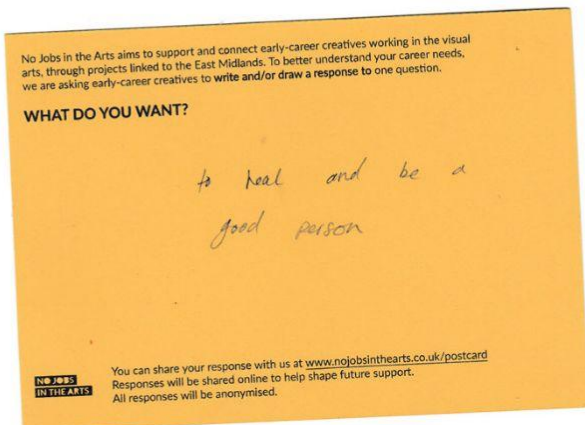 No Jobs in the Arts aims to support and connect early-career creatives working in the visual
arts, through projects linked to the East Midlands. To better understand your career needs,
we are asking early-career creatives to write and/or draw a response to one question.
WHAT DO YOU WANT?
to heal and be a
good person
NO JOBS
IN THE ARTS
You can share your response with us at www.nojobsinthearts.co.uk/postcard
Responses will be shared online to help shape future support.
All responses will be anonymised.